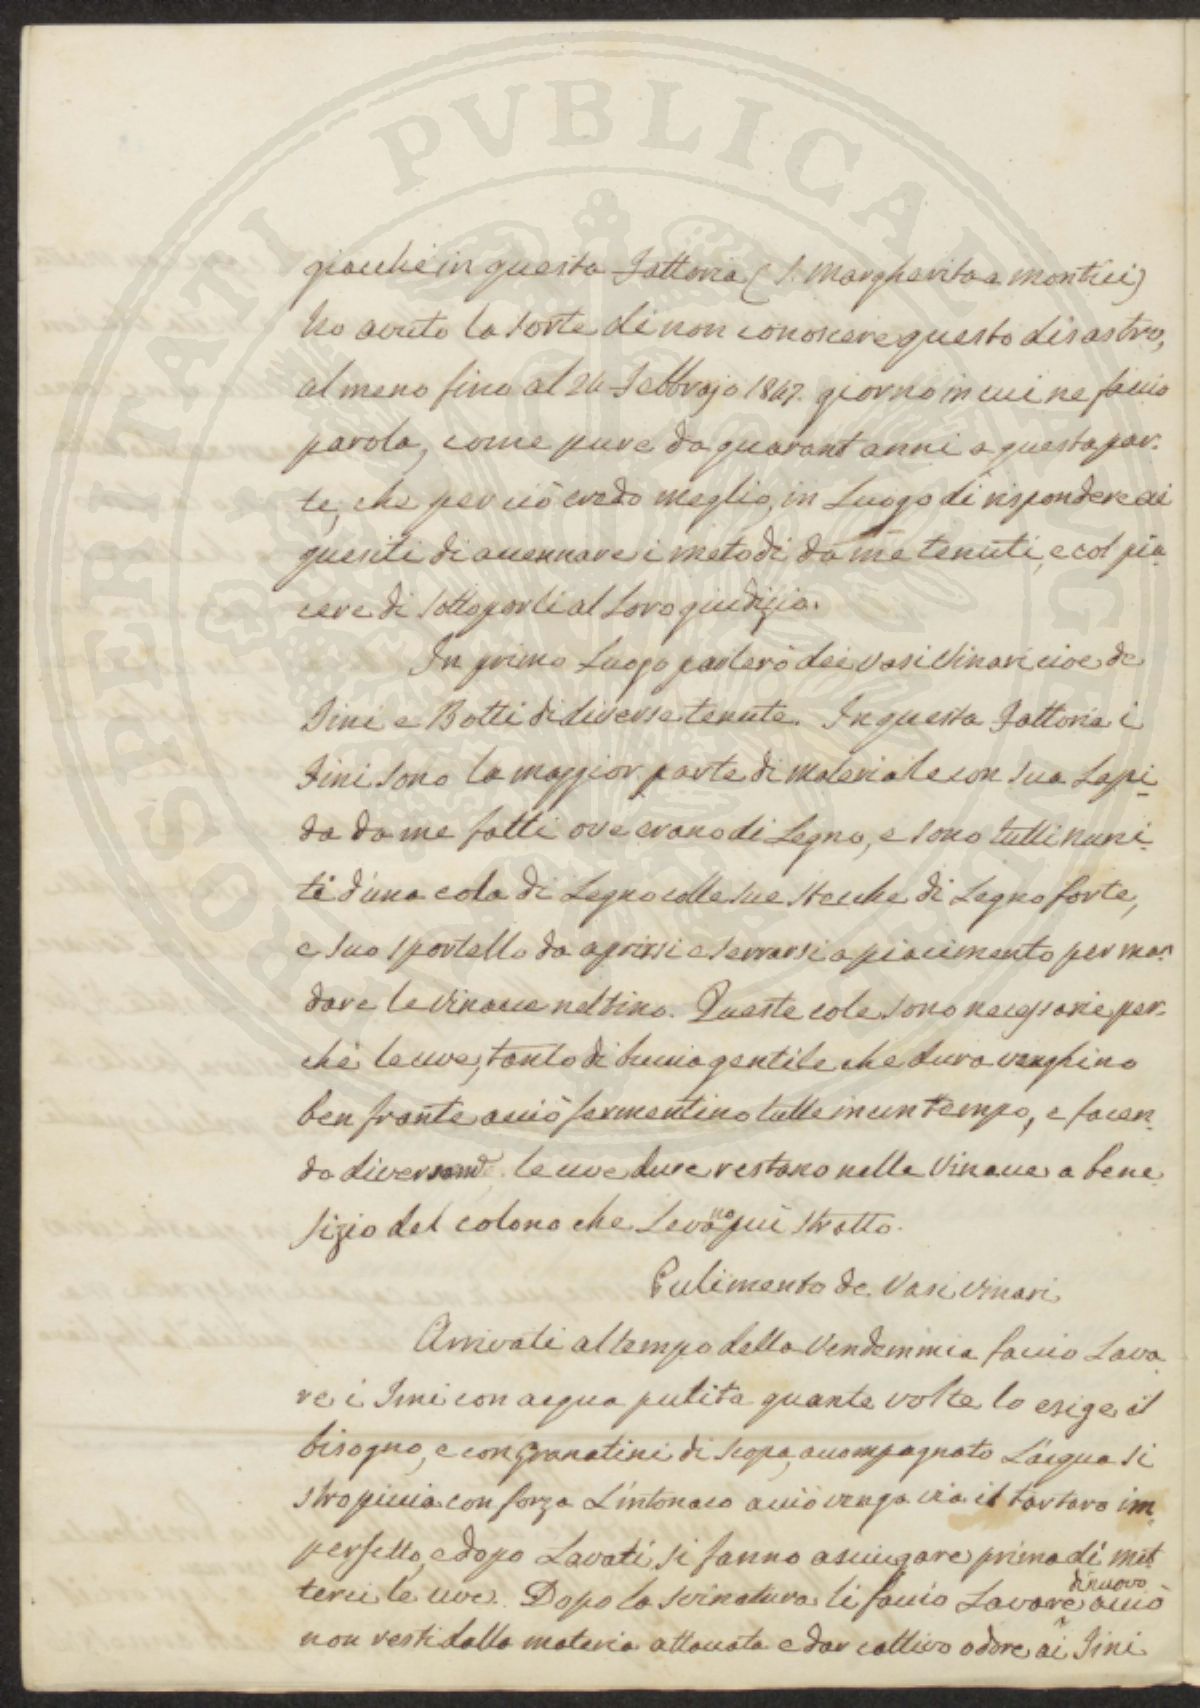 giacchè in questa Fattoria (S. Margherita a Montici)
ho avuto la sorte di non conoscere questo disastro,
al meno fino al 24 Febbrajo 1847. giorno in cui ne faccio
parola, come pure da quarant anni a questa par-
te, che per ciò credo meglio, in Luogo di rispondere ai
quesiti di accennare i metodi da me tenuti, e col pia-
cere di sottoporli al Loro giudizio.
In primo Luogo parlerò dei vasi Vinari cioe de
Tini e Botti di diverse tenute. In questa Fattoria i
Tini sono la maggior parte di materiale con sua Lapi-
da da me fatti ove erano di Legno, e sono tutti muni-
ti d'una cola di Legno colle sue stecche di Legno forte,
e suo sportello da aprirsi e serrarsi a piacimento per man-
dare le Vinacce nel tino. Queste cole sono necessarie per-
chè le uve, tanto di buccia gentile che dura venghino
ben frante acciò fermentino tutte in un tempo, e facen-
do diversamte le uve dure restano nelle Vinacce a bene-
fizio del colono che Levano più stratto.
Pulimento de Vasi vinari
Arrivati al tempo della Vendemmia faccio Lava-
re i Tini con acqua pulita quante volte lo esige il
bisogno, e con Granatini di scopa, accompagnato L'acqua si
stropiccia con forza L'intonaco acciò venga via il tartaro im-
perfetto, e dopo Lavati si fanno asciugare prima di met-
terci le uve. Dopo la svinatura li faccio Lavare di nuovo acciò
non resti dalla materia attaccata e dar cattivo odore ai Tini